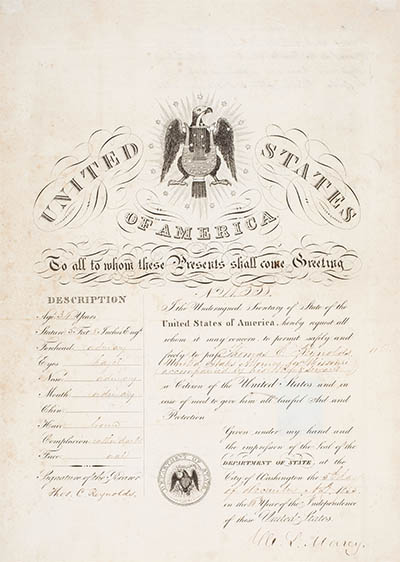 UNITED STATES
OF AMERICA
To all to whom these Presents shall come Greeting
DESCRIPTION
Age 34 Years
Stature 5 Feet Inches Eng.
Forehead ordinary
Eyes
Nose ordinary
Mouth ordinary
Chin
Hair
Complexion rather dark
Face oval
Signature of the Bearer
Thos. C. Reynolds.
I the Undersigned Secretary of State of the
United States of America, hereby request all
whom it may concern to permit safely and
freely to pass Thomas C. Reynolds
accompanied by
a Citizen of the United States and in
case of need to give him all lawful Aid and
Protection
Given under my hand and
the impression of the Seal of the
DEPARTMENT OF STATE, at the
City of Washington the
of A.D.
in the Year of the Independence
of these United States
W. L. Marcy.